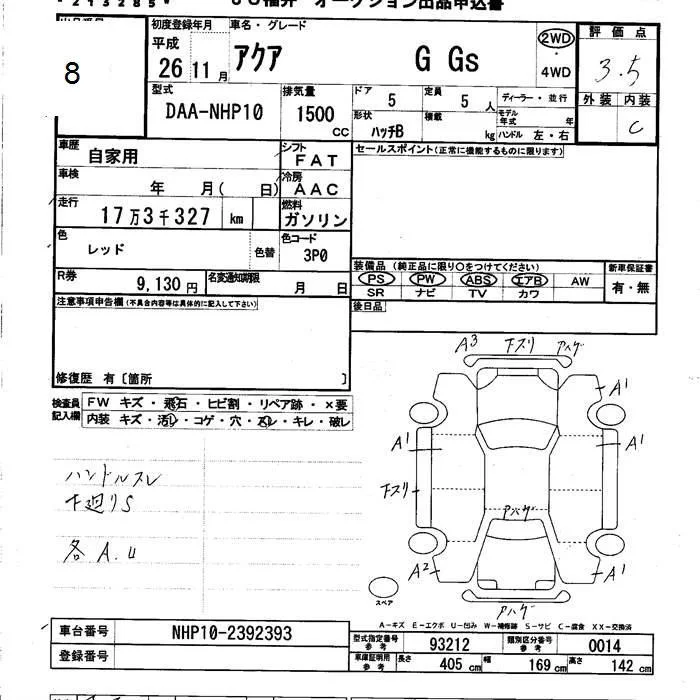 オークション出品申込書
8
初度登録年月 車名・グレード
平成 26 11月 アクア G Gs
2WD・4WD
評価点
3.5
外装 内装
C
型式 DAA-NHP10
排気量 1500 CC
ドア 5 定員 5人
形状 ハッチB 積載 kg
ディーラー・並行
モデル年式 年
ハンドル 左・右
車歴 自家用
シフト FAT
車検 年 月( 日)
冷房 AAC
走行 17万3千327 km
燃料 ガソリン
色 レッド 色替
色コード 3P0
R券 9,130円
名変通知期限 月 日
セールスポイント(正常に機能するものに限ります)
装備品 (純正品に限り○をつけてください)
PS PW ABS エアB AW
SR ナビ TV カワ
新車保証書
有・無
後日品
注意事項申告欄(不具合内容等は具体的に記入して下さい)
修復歴 有〔箇所 〕
検査員記入欄
FW キズ・飛石・ヒビ割・リペア跡・×要
内装 キズ・汚レ・コゲ・穴・スレ・キレ・破レ
ハンドルスレ
下廻りS
各A.U
A3 下スリ アハゲ
A1
A1 A1
下スリ
アハゲ
A2 A1
アハゲ
スペア
A-キズ E-エクボ U-凹み W-補修跡 S-サビ C-腐食 XX-交換済
車台番号 NHP10-2392393
登録番号
型式指定番号 参考 93212 類別区分番号 参考 0014
車庫証明用 参考 長さ 405cm 幅 169cm 高さ 142cm